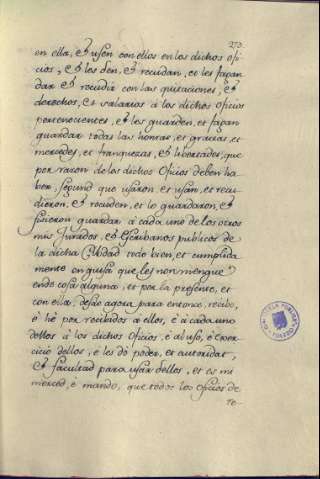 273.
en ella, é usen con ellos en los dichos ofi-
cios, é les den, é recudan, et les façan
dar é recudir con las quitaciones, é
derechos, et salarios á los dichos oficios
pertenecientes, é les guarden, et façan
guardar todas las honras, et gracias, et
mercedes, et franquezas, é libertades, que
por razon de los dichos oficios deben ha-
ber, segund que usaron, et usan, et recu-
dieron, é recuden, et le guardaron, é
ficieron guardar á cada uno de los otros
mis Jurados, é Escribanos publicos de
la dicha Cibdad todo bien, et cumplida
mente en guisa que les non mengue
ende cosa alguna, et por la presente, et
con ella, desde agora para entonce, recibo,
é hé por recibidos á ellos, é á cada uno
dellos á los dichos oficios, é al uso, é exer-
cicio dellos, é les dó poder, et autoridat,
é facultad para usar dellos, et es mi
merced, é mando, que todos los oficios de
re-